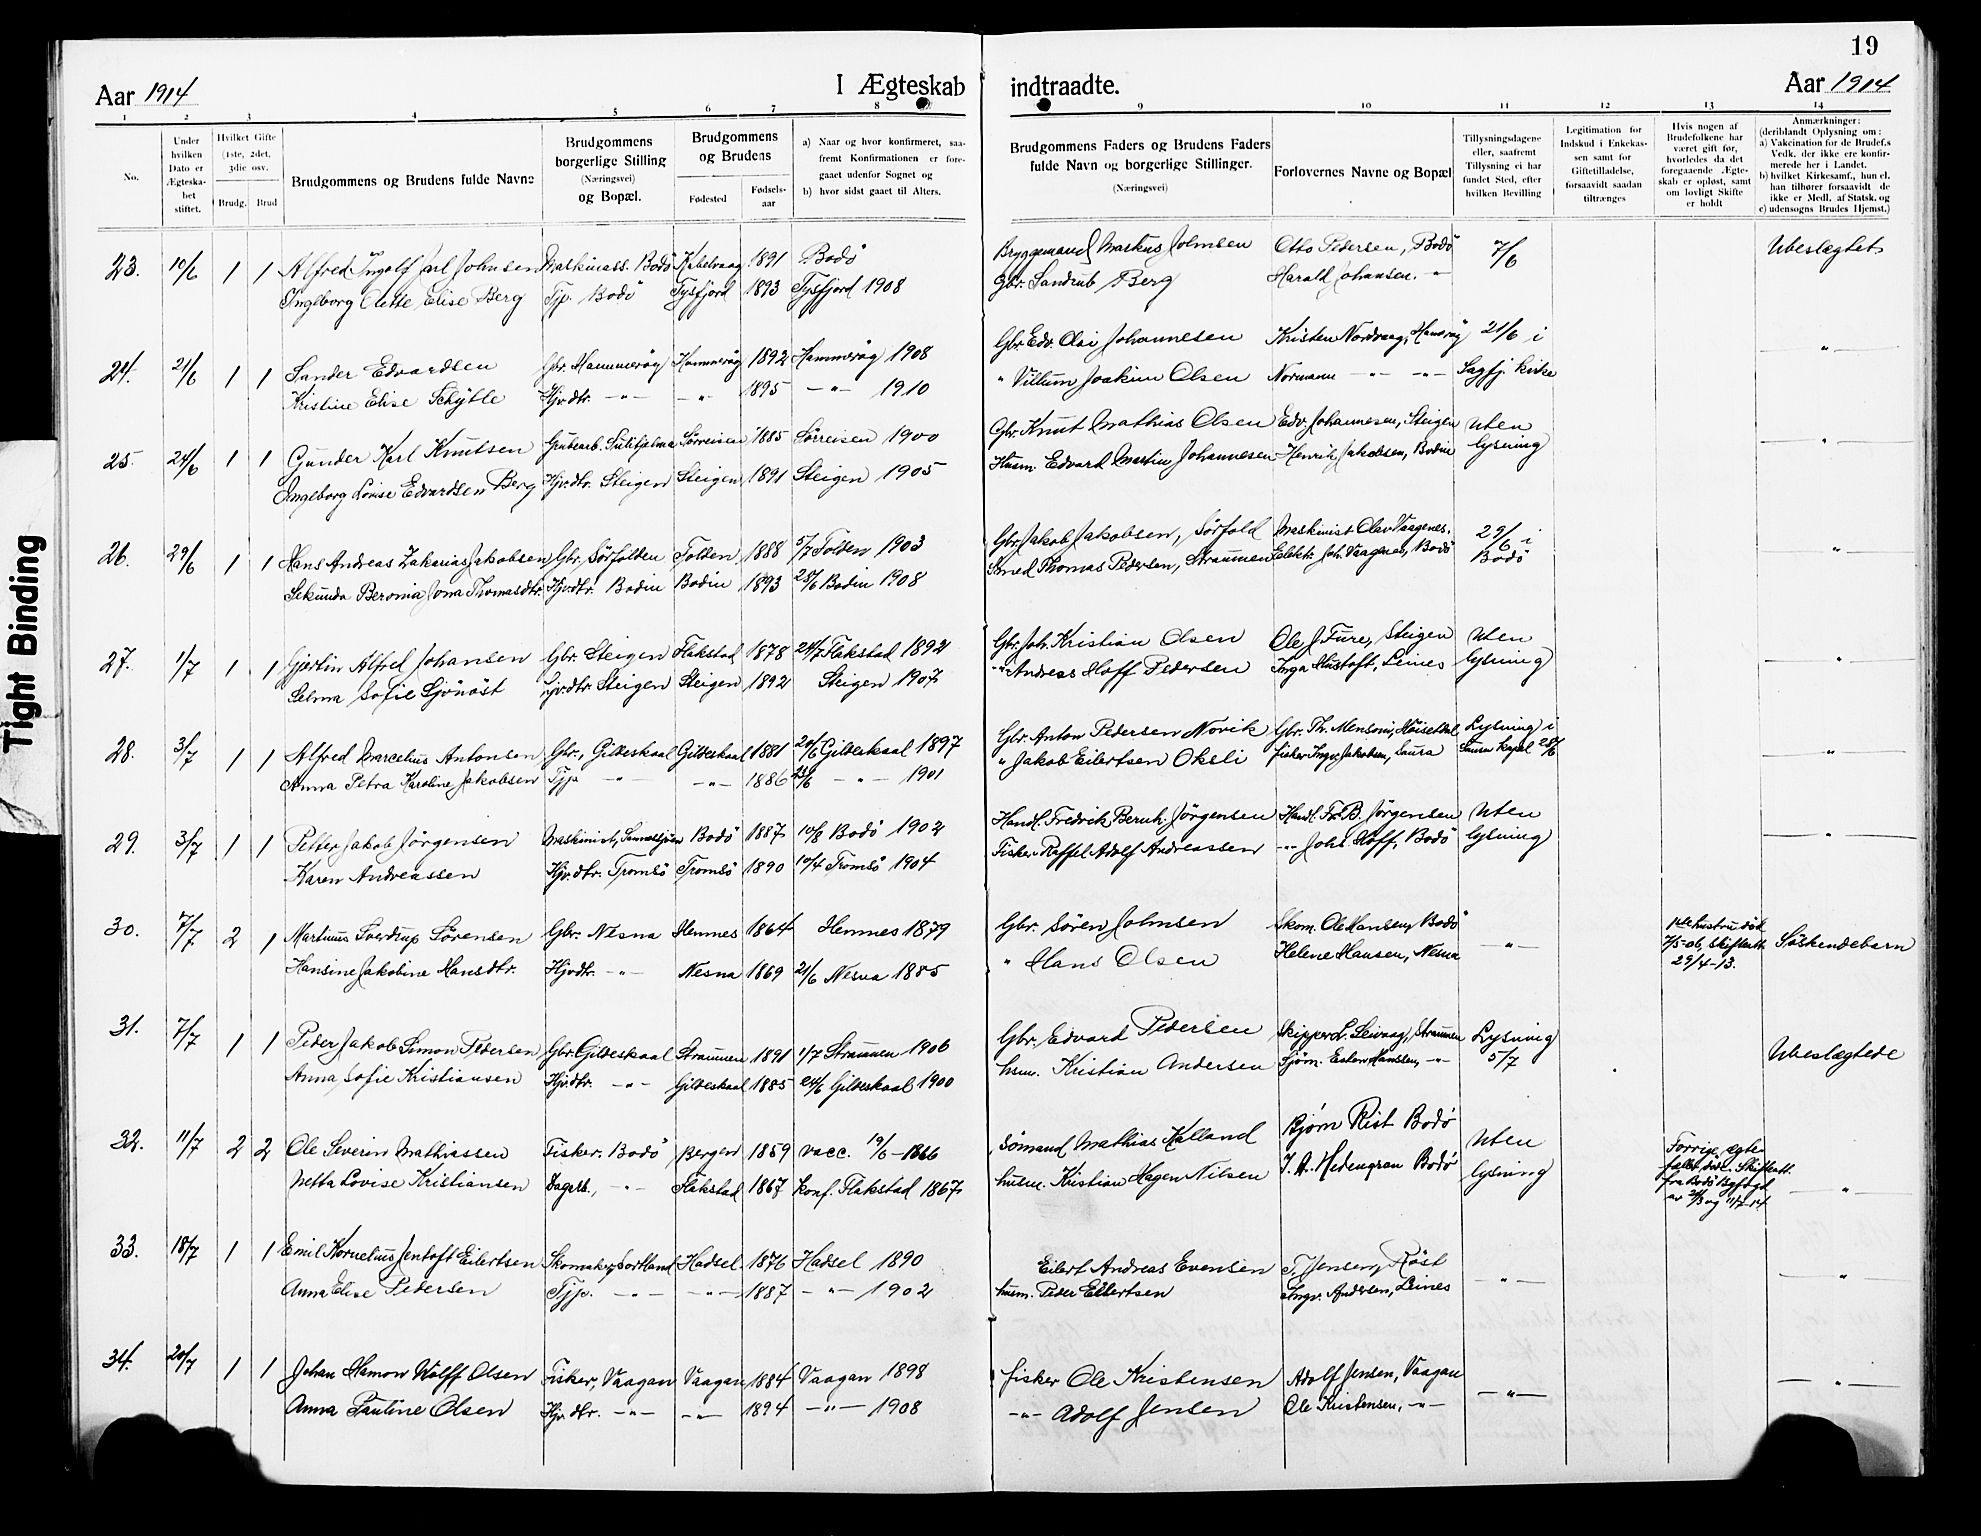 19
Aar 1914 I Ægteskab indtraadte. Aar 1914
1 2 3 4 5 6 7 8 9 10 11 12 13 14
No.
Under hvilken Dato er Ægteskabet stiftet.
Hvilket Gifte (1ste, 2det, 3die osv.
Brudg. Brud
Brudgommens og Brudens fulde Navne
Brudgommens borgerlige Stilling (Næringsvei) og Bopæl.
Brudgommens og Brudens
Fødested Fødselsaar
a) Naar og hvor konfirmeret, saafremt Konfirmationen er foregaaet udenfor Sognet og
b) hvor sidst gaaet til Alters.
Brudgommens Faders og Brudens Faders fulde Navn og borgerlige Stillinger.
(Næringsvei)
Forlovernes Navne og Bopæl
Tillysningsdagene eller, saafremt Tillysning ei har fundet Sted, efter hvilken Bevilling
Legitimation for Indskud i Enkekassen samt for Giftetilladelse, forsaavidt saadan tiltrænges
Hvis nogen af Brudefolkene har været gift før, hvorledes da det foregaaende Ægteskab er opløst, samt om lovligt Skifte er holdt
Anmærkninger: (deriblandt Oplysning om: a) Vakcination for de Brudef.s Vedk. der ikke ere konfirmerede her i Landet. b) hvilket Kirkesamf., hun el. han tilhører forsaavidt de ikke er Medl. af Statsk. og c) udensogns Brudes Hjemst.)
23. 10/6 1 1 Alfred Ingolf Jarl Johnsen Maskinass. Bodö Kabelvaag 1891 Bodö Bryggemand Markus Johnsen Otto Pedersen, Bodö 7/6 Ubeslægtet
Ingeborg Olette Elise Berg Tjp. Bodö Tysfjord 1893 Tysfjord 1908 Gbr. Sandrub Berg Harald Johansen. -"-
24. 21/6 1 1 Sander Edvardsen Gbr. Hammeröy Hammeröy 1892 Hammeröy 1908 Gbr. Edv. Olai Johannesen Kristen Nordvaag, Hamröy 21/6 i -"-
Kristine Elise Schytle Hjv.dtr. -"- -"- 1895 -"- 1910 " Villum Joakim Olsen Normann -"- -"- Sagfj. kirke
25. 24/6 1 1 Gunder Karl Knutsen Grubearb. Sulitjelma Sörreisen 1885 Sörreisen 1900 Gbr. Knut Mathias Olsen Edv. Johannesen, Steigen Uten -"-
Ingeborg Lovise Edvardsen Berg Hjv.dtr. Steigen Steigen 1891 Steigen 1905 Husm. Edvard Martin Johannesen Henrik Jakobsen, Bodin lysning
26. 29/6 1 1 Hans Andreas Zakarias Jakobsen Gbr. Sörfolden Folden 1888 5/7 Folden 1903 Gbr. Jakob Jakobsen, Sörfold Maskinist Olav Vaagenes. 29/6 i -"-
Sekunda Beronia Jona Thomasdtr. Hjv.dtr. Bodin Bodin 1893 28/6 Bodin 1908 Smed Thomas Pedersen, Straumen Elektr. Joh. Vaagenes, Bodö Bodö
27. 1/7 1 1 Gjertin Alfred Johansen Gbr. Steigen Flakstad 1878 24/7 Flakstad 1892 Gbr. Joh. Kristian Olsen Ole J. Fure, Steigen Uten -"-
Selma Sofie Sjönöst Hjv.dtr. Steigen Steigen 1892 Steigen 1907 -"- Andreas Hoff Pedersen Inga Hustoft, Leines lysning
28. 3/7 1 1 Alfred Marcelius Antonsen Gbr., Gildeskaal Gildeskaal 1881 20/6 Gildeskaal 1897 Gbr. Anton Pedersen Novik Gbr. Th. Mensoni, Höisetdal Lysning i -"-
Anna Petra Karoline Jakobsen Tjp -"- -"- 1886 23/6 -"- 1901 " Jakob Eilertsen Oksli fisker Ingv. Jakobsen, Saura Saura kapel 28/6
29. 3/7 1 1 Petter Jakob Jörgensen Maskinist, Sannessjöen Bodö 1887 10/8 Bodö 1902 Handl. Fredrik Bernh. Jörgensen Handl. Fr. B. Jörgensen Uten -"-
Karen Andreassen Hjv.dtr. Tromsö Tromsö 1890 10/4 Tromsö 1904 Fisker Raffel Adolf Andreassen -"- Johs. Hoff, Bodö lysning
30. 7/7 2 1 Martinus Sverdrup Sörensen Gbr. Nesna Hemnes 1864 Hemnes 1879 Gbr. Sören Johnsen Skom. Ole Hansen, Bodö -"- 1ste hustru död 7/5-06, skifteatt. 29/4-13. Söskendebarn
Hansine Jakobine Hansdtr. Hjvdtr. -"- Nesna 1869 21/6 Nesna 1885 " Hans Olsen Helene Hansen, Nesna
31. 7/7 1 1 Peder Jakob Simon Pedersen Gbr. Gildeskaal Straumen 1891 1/7 Straumen 1906 Gbr. Edvard Pedersen Skipper L. Seivaag, Straumen Lysning Ubeslægtede
Anna Sofie Kristiansen Hjv.dtr. -"- Gildeskaal 1885 24/6 Gildeskaal 1900 husm. Kristian Andersen Sjöm. Ester Hanssen, -"- 5/7
32. 11/7 2 2 Ole Severin Mathiassen Fisker. Bodö Bergen 1859 vacc. 19/6-1866 Sömand Mathias Kalland Bjørn Rist Bodø Uten Forrige ægtefæller döde. Skifteatt. fra Bodö Byfogd av 28/3 og 11/7-14 -"-
Netta Lovise Kristiansen Dagarb., -"- Flakstad 1867 konf. Flakstad 1867 husm. Kristian Hagen Nilsen J. A. Hedengran Bodø lysning
33. 18/7 1 1 Emil Kornelius Jentoft Eilertsen Skomaker, Sortland Hadsel 1876 Hadsel 1890 Eilert Andreas Evensen T. Jensen, Röst -"- -"-
Anna Elise Pedersen Tjp. -"- -"- 1887 -"- 1902 husm. Peder Eilertsen Ingv. Andersen, Leines
34. 20/7 1 1 Johan Hamon Wolff Olsen Fisker, Vaagan Vaagan 1884 Vaagan 1898 fisker Ole Kristensen Adolf Jensen, Vaagan -"- -"-
Anna Pauline Olsen Hjv.dtr. -"- -"- 1894 -"- 1908 -"- Adolf Jensen Ole Kristensen, -"-
Tight Binding